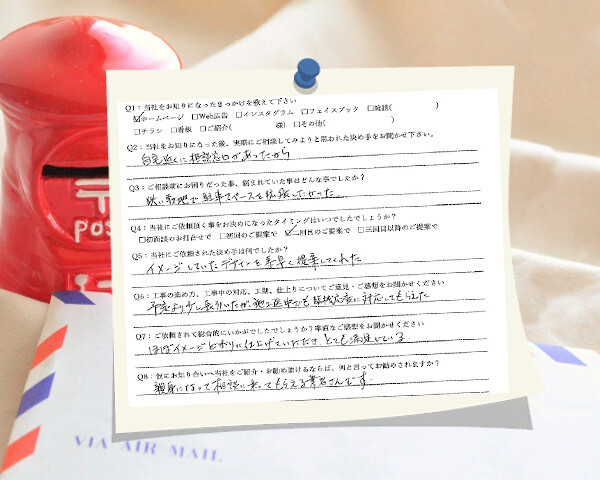 Q1：当社をお知りになったきっかけを教えて下さい
☑ホームページ □Web広告 □インスタグラム □フェイスブック □雑誌( )
□チラシ □看板 □ご紹介( 様) □その他( )
Q2：当社をお知りになった後、実際にご相談してみようと思われた決め手をお聞かせ下さい。
自宅近くに相談窓口があったから
Q3：ご相談前にお困りだった事、悩まれていた事はどんな事でしたか？
狭い敷地で駐車スペースを拡張したかった
Q4：当社にご依頼頂く事をお決めになったタイミングはいつでしたでしょうか？
□初面談のお打合せで □初回のご提案で ☑二回目のご提案で □三回目以降のご提案で
Q5：当社にご依頼された決め手は何でしたか？
イメージしていたデザインを素早く提案してくれた
Q6：工事の進め方、工事中の対応、工期、仕上りについてご意見・ご感想をお聞かせください
予定より少し長引いたが、施工途中でも臨機応変に対応してもらえた
Q7：ご依頼されて総合的にいかがでしたでしょうか？率直なご感想をお聞かせください
ほぼイメージどおりに仕上げていただき、とても満足している
Q8：仮にお知り合いへ当社をご紹介・お勧め頂けるならば、何と言ってお勧めされますか？
親身になって相談に乗ってもらえる業者さんです
〒
POS
VIA AIR MAIL